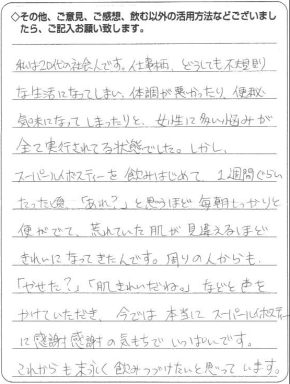 ◇その他、ご意見、ご感想、飲む以外の活用方法などございまし
たら、ご記入お願い致します。
私は20代の社会人です。仕事柄、どうしても不規則
な生活になってしまい、体調が悪かったり、便秘
気味になってしまったりと、女性に多い悩みが
全て実行されてる状態でした。しかし、
スーパールイボスティーを飲みはじめて、1週間ぐらい
たった頃、「あれ?」と思うほど毎朝しっかりと
便がでて、荒れていた肌が見違えるほど
きれいになってきたんです。周りの人からも
「やせた?」「肌きれいだね。」などと声を
かけていただき、今では本当にスーパールイボスティー
に感謝感謝の気もちでいっぱいです。
これからも末永く飲みつづけたいと思っています。